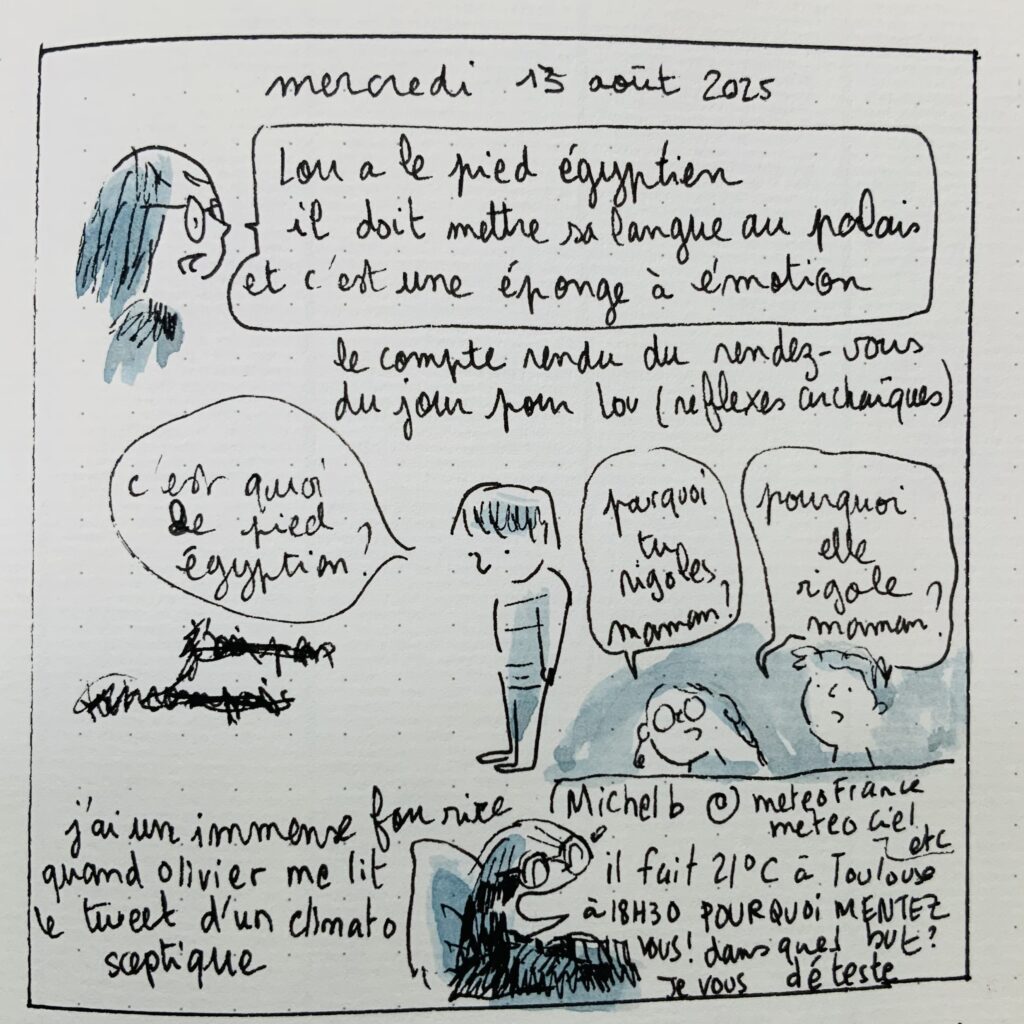 mercredi 13 août 2025
Lou a le pied égyptien
il doit mettre sa langue au palais
et c'est une éponge à émotion
le compte rendu du rendez-vous
du jour pour Lou (réflexes archaïques)
c'est quoi
le pied
égyption?
pourquoi
tu
rigoles
maman?
pourquoi
elle
rigole
maman?
j'ai un immense fou rire
quand olivier me lit
le tweet d'un climato
sceptique
(Michel b @ meteoFrance
meteo ciel
etc
il fait 21°C à Toulouse
à 18H30 POURQUOI MENTEZ
VOUS! dans quel but?
Je vous déteste